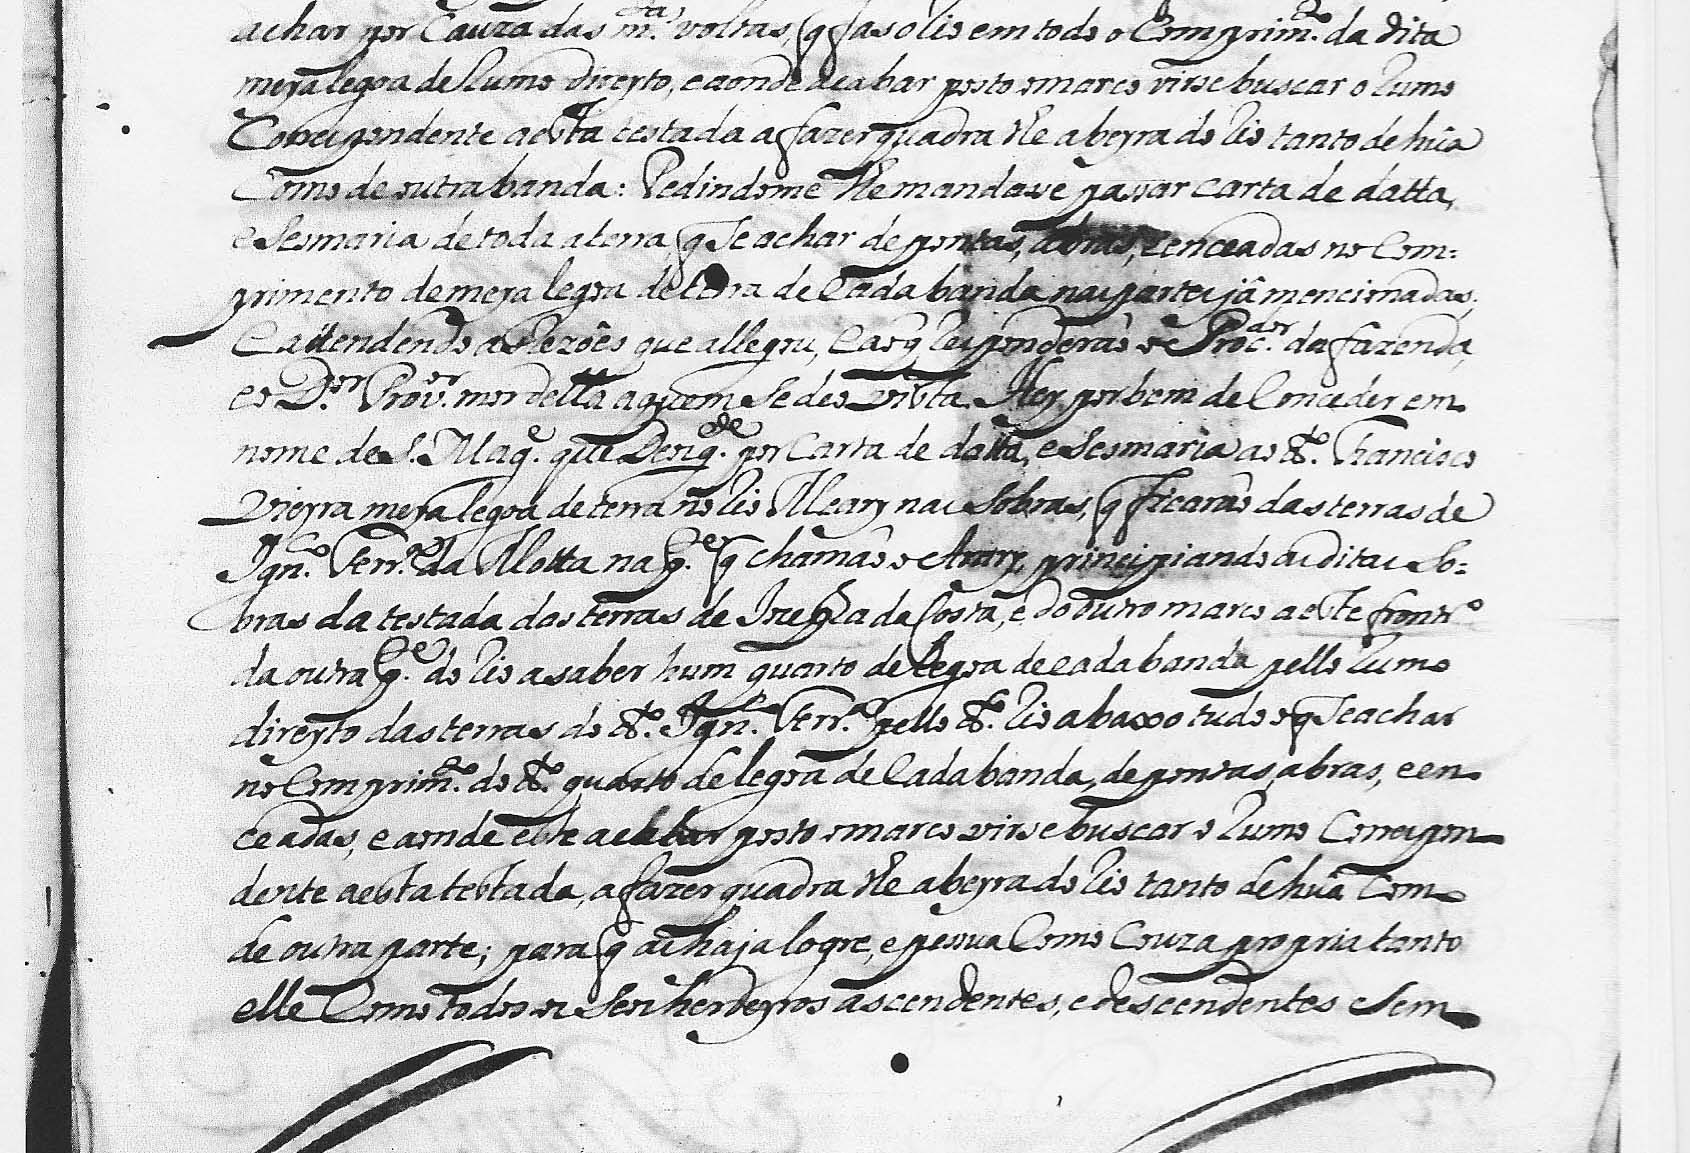 achar por Cauza das m.tas voltas, q̃ fas o Rio em todo o Comprim.to da dita
meya legoa de Rumo direyto, e aonde acabar posto o marco virse buscar o Rumo
Correspondente aesta testada afazer quadra the abeyra do Rio tanto de hũa
Como de outra banda: Pedindome lhe mandasse passar carta de datta,
e Sesmaria de toda aterra, q̃ Se achar de pontas, abras, e enceadas no Com:
primento de meya legoa de terra de Cada banda nas partes jâ mencionadas;
E attendendo as Rezoẽs que allegou, e ao q̃ Responderaõ o Proc.dor da fazenda,
e o D.or Prov.or mor della aquem Se deo vista. Hey por bem de Conceder em
nome de S. Mag.e que Deos g.de por Carta de datta, e Sesmaria ao d.to Francisco
Vieyra meya legoa de terra no Rio Meary nas Sobras, q̃ ficaraõ das terras de
Ign.co Ferr.a da Motta na p.te q̃ chamaõ o Arary, principiando as ditas So:
bras da testada das terras de da Costa, e do outro marco aeste front.o
da outra p.te do Rio a saber hum quarto de legoa de cada banda pello Rumo
direyto das terras do d.to Ign.co Ferr.a pello d.to Rio abaxo tudo o q̃ Se achar
no Comprim.to do d.to quarto de legoa de Cada banda, de pontas, abras, e en
ceadas, e aonde este acabar posto o marco virse buscar o Rumo Correspon
dente aesta testada, afazer quadra the abeyra do Rio tanto de hũa Como
de outra parte; para q̃ as haja logre, e pessua Como Couza propria tanto
elle Como todos os Seus herdeyros ascendentes, e descendentes Sem